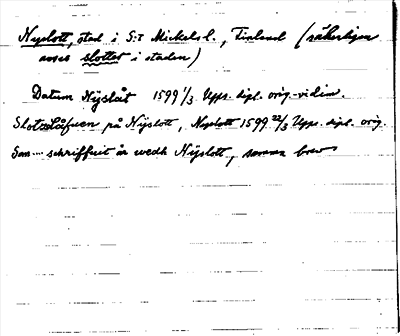 Nyslott, stad i S:t Michels l., Finland (säkerligen
avses slottet i staden)
Datum Nÿslåt 1599 1/3 Upps. dipl. orig. vidim.
Slotzlåfuen på Nÿslott, Nyslott 1599 22/3 Upps. dipl. orig.
Som schriffuit är wedh Nÿslott, samma brev